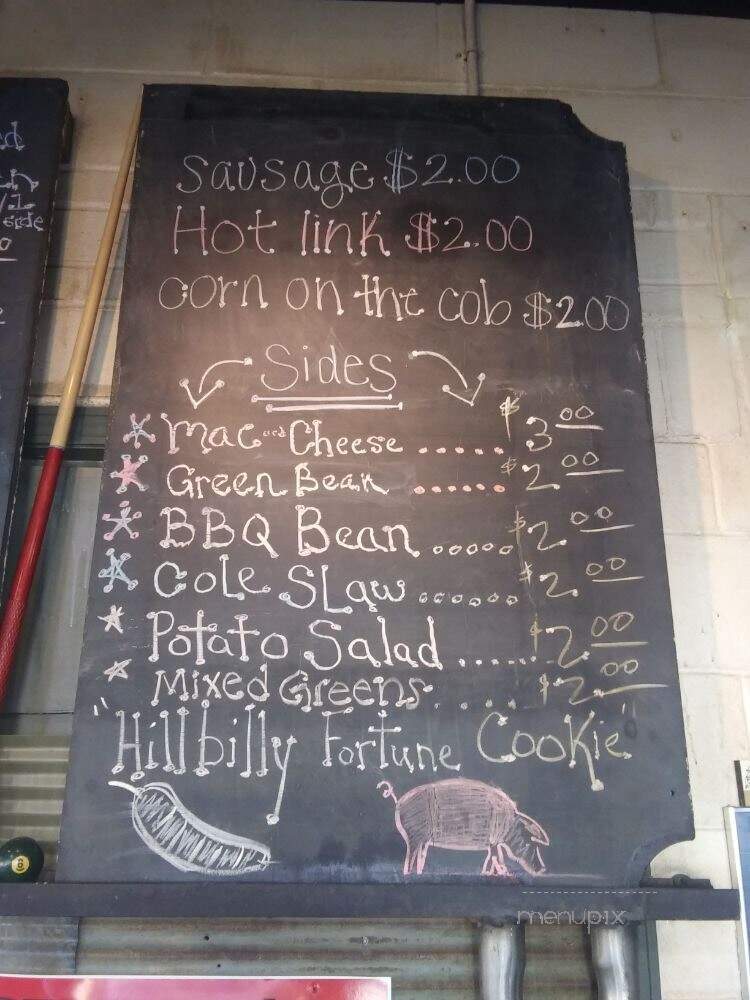 Sausage $2.00
Hot link $2.00
corn on the cob $2.00
Sides
Mac and Cheese ..... $3.00
Green Bean ...... $2.00
BBQ Bean ..... $2.00
Cole Slaw ...... $2.00
Potato Salad ...... $2.00
Mixed Greens. ... $2.00
"Hillbilly Fortune Cookie"
8
menupix